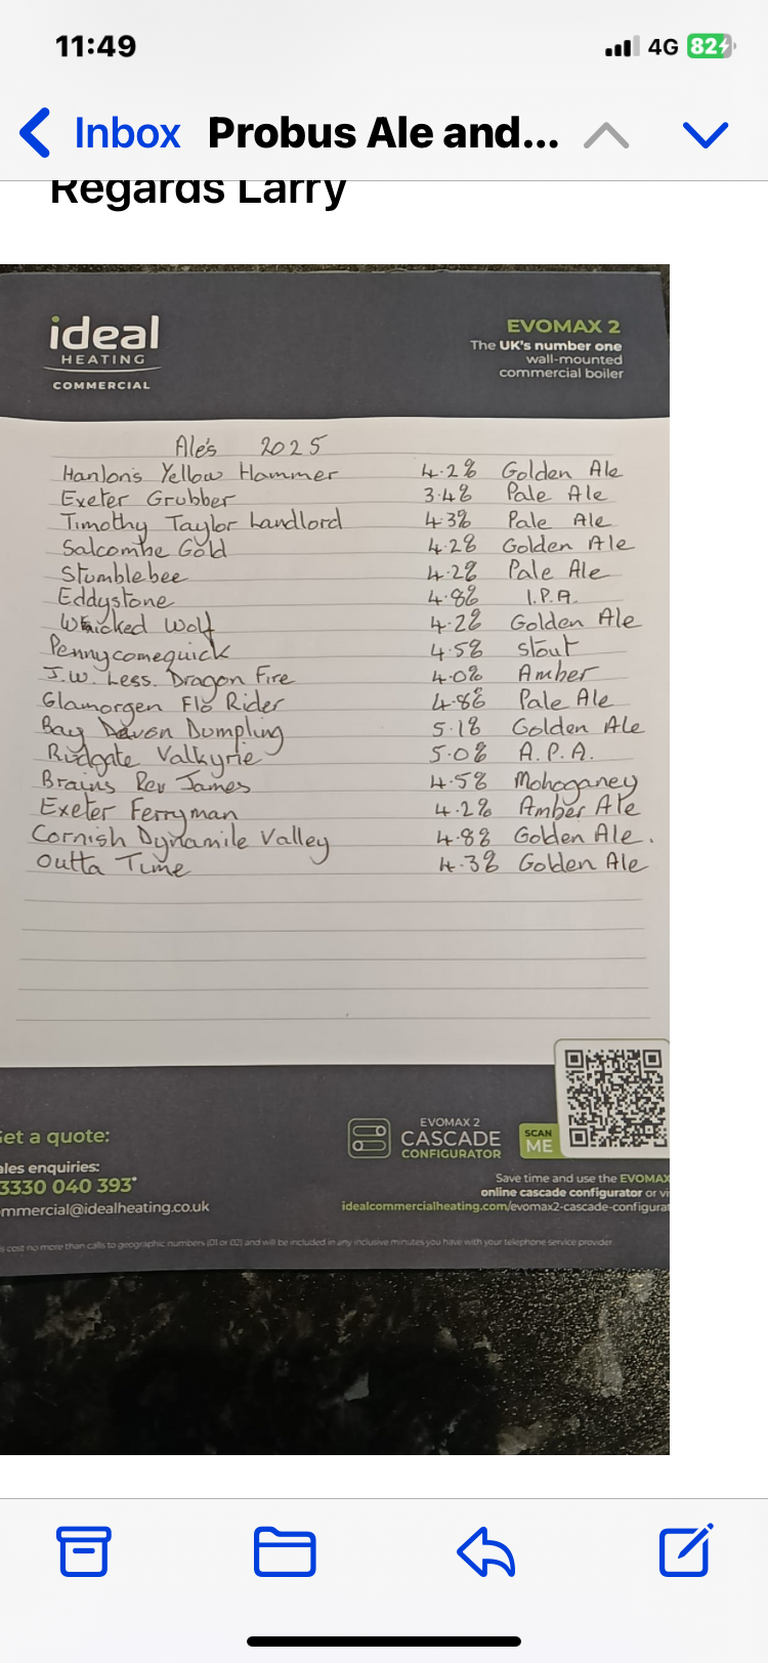 11:49
4G 82
Inbox Probus Ale and...
Regards Larry
ideal
HEATING
COMMERCIAL
EVOMAX 2
The UK's number one
wall-mounted
commercial boiler
Ale's 2025
Hanlon's Yellow Hammer 4.2% Golden Ale
Exeter Grubber 3.4% Pale Ale
Timothy Taylor Landlord 4.3% Pale Ale
Salcombe Gold 4.2% Golden Ale
Stumblebee 4.2% Pale Ale
Eddystone 4.8% I.P.A.
Whicked Wolf 4.2% Golden Ale
Pennycomequick 4.5% Stout
J.W. Less. Dragon Fire 4.0% Amber
Glamorgen Flo Rider 4.8% Pale Ale
Bay Devon Dumpling 5.1% Golden Ale
Rudgate Valkyrie 5.0% A.P.A.
Brains Rev James 4.5% Mohoganey
Exeter Ferryman 4.2% Amber Ale
Cornish Dynamile Valley 4.8% Golden Ale.
Outta Time 4.3% Golden Ale
et a quote:
ales enquiries:
3330 040 393*
mmercial@idealheating.co.uk
EVOMAX 2
CASCADE
CONFIGURATOR
SCAN
ME
Save time and use the EVOMAX
online cascade configurator or vi
idealcommercialheating.com/evomax2-cascade-configurat
s cost no more than calls to geographic numbers (01 or 02) and will be included in any inclusive minutes you have with your telephone service provider.